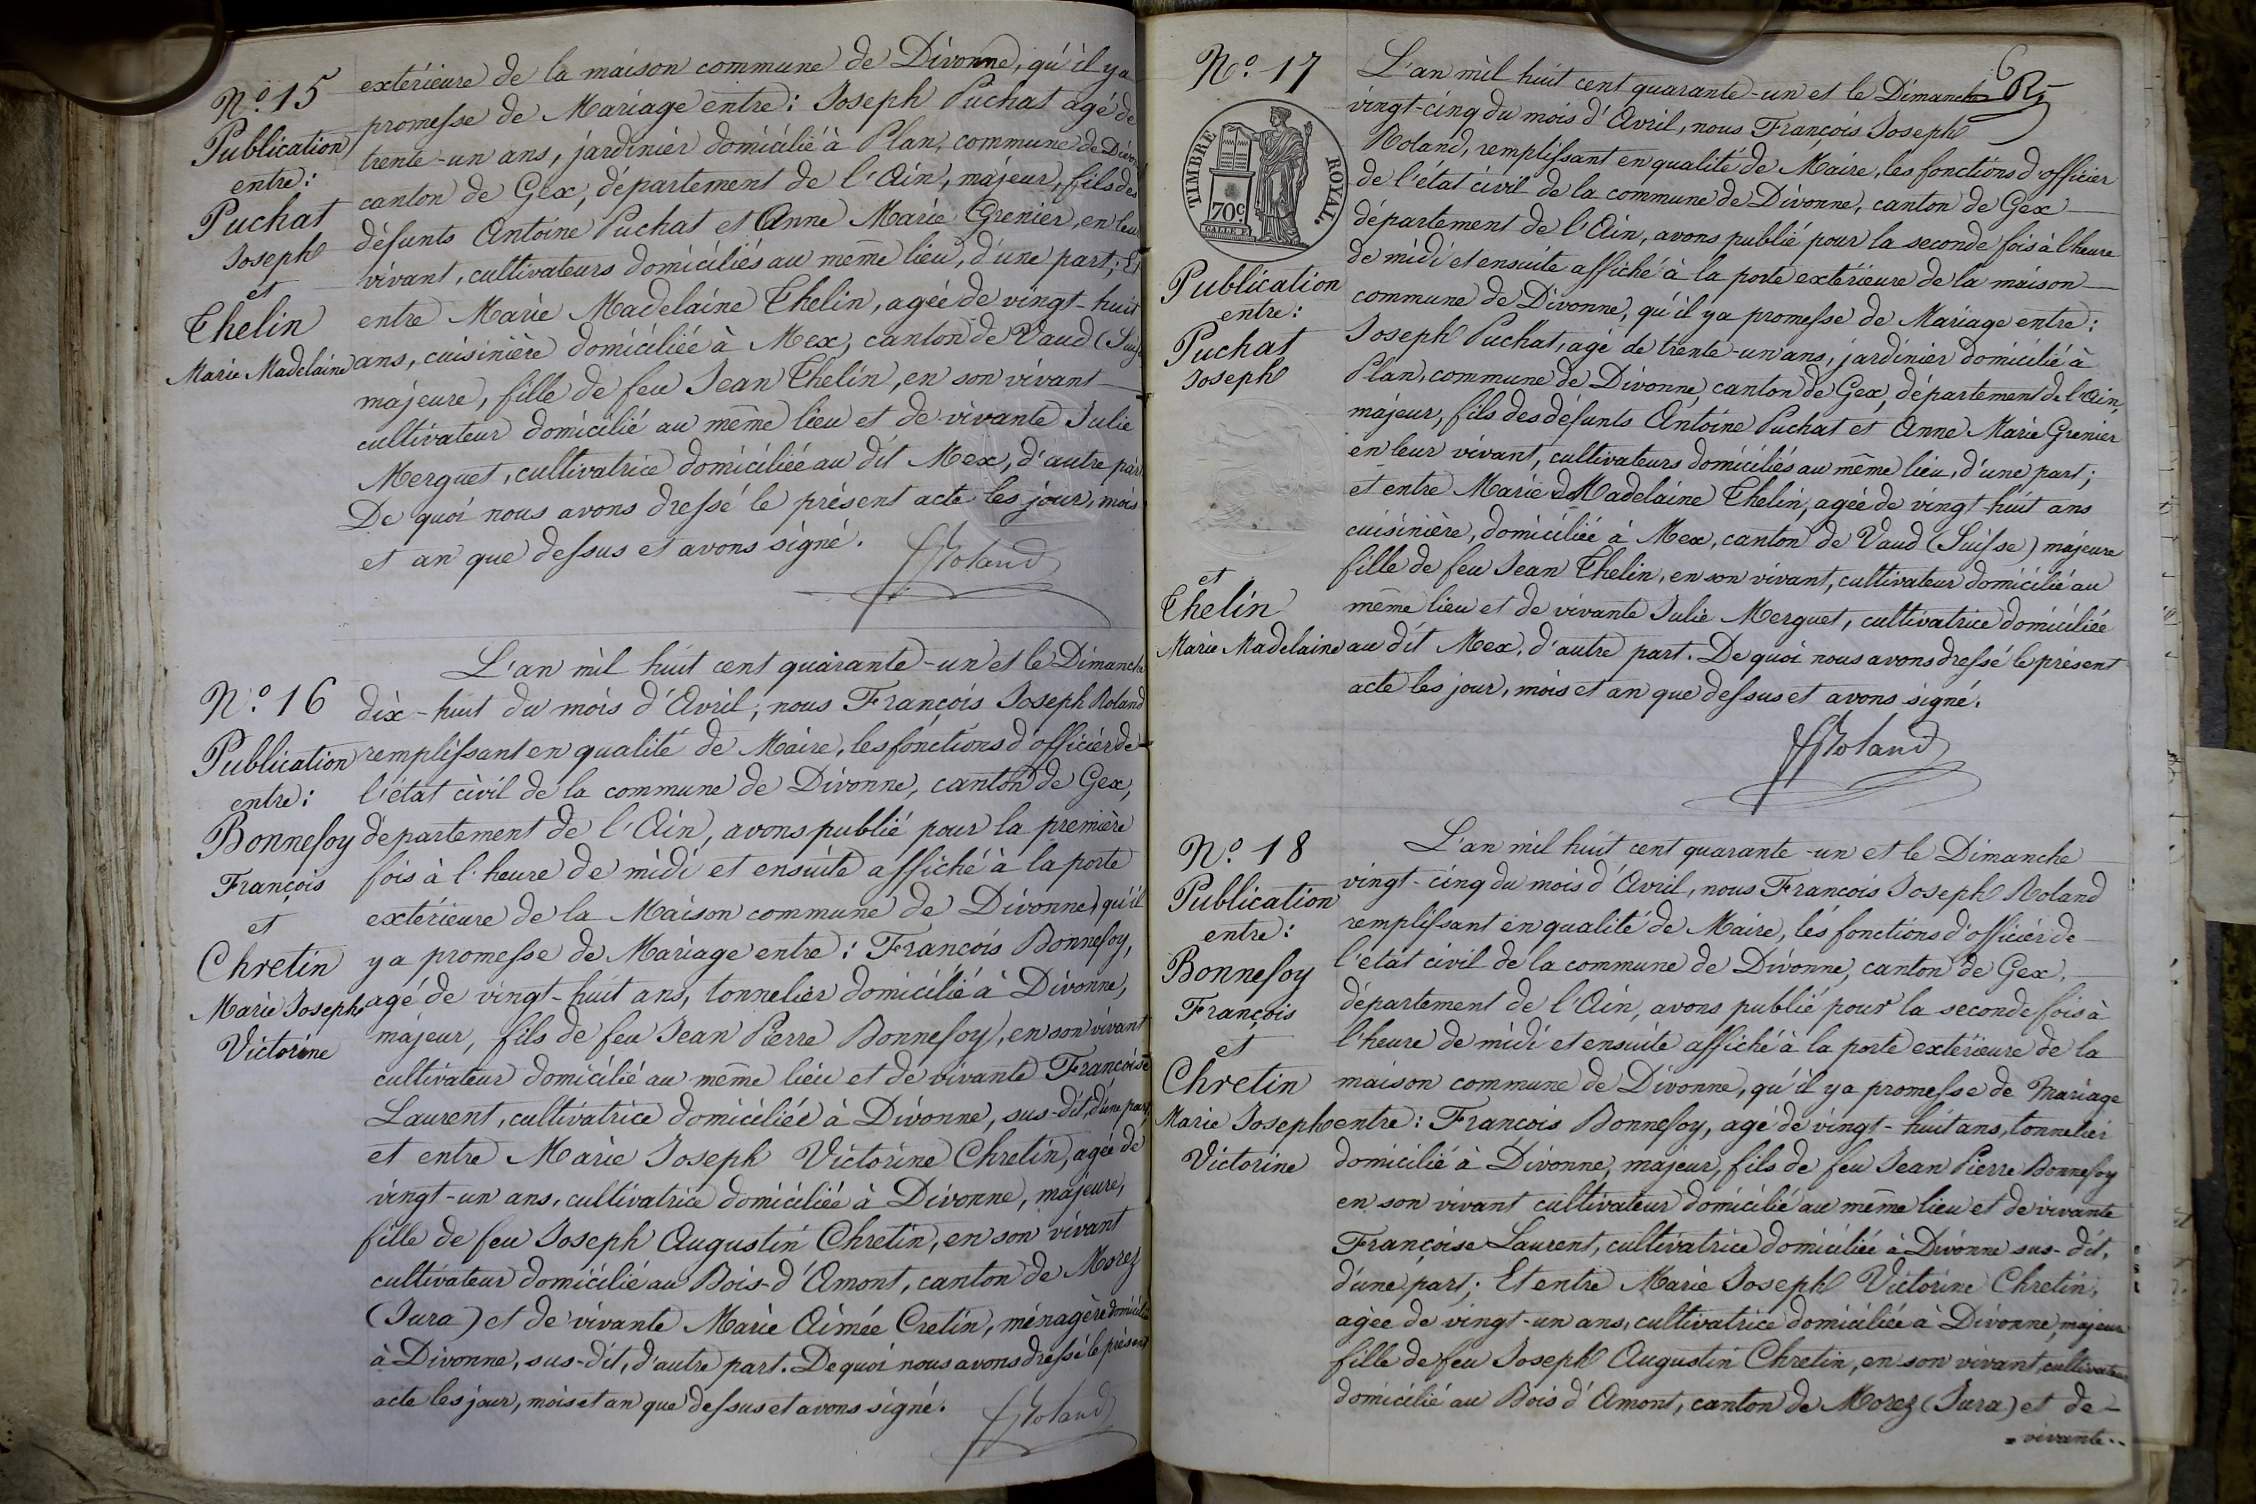 N.o 15
Publication
entre:
Puchat
Joseph
et
Thelin
Marie Madelaine
extérieure de la maison commune de Divonne, qu'il y a
promesse de Mariage entre: Joseph Puchat agé de
trente-un ans, jardinier domicilié à Plan, commune de
canton de Gex, département de l'Ain, majeur, fils des
défunts Antoine Puchat et Anne Marie Grenier, en leur
vivant, cultivateurs domiciliés au même lieu, d'une part; Et
entre Marie Madelaine Thelin, agée de vingt-huit
ans, cuisinière domiciliée à Mex, canton de Vaud
majeure, fille de feu Jean Thelin, en son vivant
cultivateur domicilié au même lieu et de vivante Julie
Merguet, cultivatrice domiciliée au dit Mex, d'autre part
De quoi nous avons dressé le présent acte les jour, mois
et an que dessus et avons signé.
FJRoland
N.o 16
Publication
entre:
Bonnefoy
François
et
Chretin
Marie Joseph
Victorine
L'an mil huit cent quarante-un et le Dimanche
dix-huit du mois d'Avril, nous François Joseph Roland
remplissant en qualité de Maire, les fonctions d'officier de
l'état civil de la commune de Divonne, canton de Gex,
département de l'Ain, avons publié pour la première
fois à l'heure de midi et ensuite affiché à la porte
extérieure de la Maison commune de Divonne, qu'il
y a promesse de Mariage entre: François Bonnefoy,
agé de vingt-huit ans, tonnelier domicilié à Divonne,
majeur, fils de feu Jean Pierre Bonnefoy, en son vivant
cultivateur domicilié au même lieu et de vivante Françoise
Laurent, cultivatrice domiciliée à Divonne, sus-dit, d'une part,
et entre Marie Joseph Victorine Chretin, agée de
vingt-un ans, cultivatrice domiciliée à Divonne, majeure,
fille de feu Joseph Augustin Chretin, en son vivant
cultivateur domicilié au Bois-d'Amont, canton de Morez
(Jura) et de vivante Marie Aimée Cretin, ménagère domiciliée
à Divonne, sus-dit, d'autre part. De quoi nous avons dressé le présent
acte les jour, mois et an que dessus et avons signé.
FJRoland
6
N.o 17
TIMBRE ROYAL.
70c.
Publication
entre:
Puchat
Joseph
et
Thelin
Marie Madelaine
L'an mil huit cent quarante-un et le Dimanche
vingt-cinq du mois d'Avril, nous François Joseph
Roland, remplissant en qualité de Maire, les fonctions d'officier
de l'état civil de la commune de Divonne, canton de Gex
département de l'Ain, avons publié pour la seconde fois à l'heure
de midi et ensuite affiché à la porte extérieure de la maison
commune de Divonne, qu'il y a promesse de Mariage entre:
Joseph Puchat, agé de trente-un ans, jardinier domicilié à
Plan, commune de Divonne, canton de Gex, département de l'Ain,
majeur, fils des défunts Antoine Puchat et Anne Marie Grenier
en leur vivant, cultivateurs domiciliés au même lieu, d'une part;
et entre Marie Madelaine Thelin, agée de vingt-huit ans
cuisinière, domiciliée à Mex, canton de Vaud (Suisse) majeure
fille de feu Jean Thelin, en son vivant, cultivateur domicilié au
même lieu et de vivante Julie Merguet, cultivatrice domiciliée
au dit Mex, d'autre part. De quoi nous avons dressé le présent
acte les jour, mois et an que dessus et avons signé.
FJRoland
N.o 18
Publication
entre:
Bonnefoy
François
et
Chretin
Marie Joseph
Victorine
L'an mil huit cent quarante-un et le Dimanche
vingt-cinq du mois d'Avril, nous François Joseph Roland
remplissant en qualité de Maire, les fonctions d'officier de
l'état civil de la commune de Divonne, canton de Gex,
département de l'Ain, avons publié pour la seconde fois à
l'heure de midi et ensuite affiché à la porte extérieure de la
maison commune de Divonne, qu'il y a promesse de Mariage
entre: François Bonnefoy, agé de vingt-huit ans, tonnelier
domicilié à Divonne, majeur, fils de feu Jean Pierre Bonnefoy
en son vivant cultivateur domicilié au même lieu et de vivante
Françoise Laurent, cultivatrice domiciliée à Divonne sus-dit,
d'une part; Et entre Marie Joseph Victorine Chretin,
agée de vingt-un ans, cultivatrice domiciliée à Divonne, majeure
fille de feu Joseph Augustin Chretin, en son vivant cultivateur
domicilié au Bois d'Amont, canton de Morez (Jura) et de
vivante